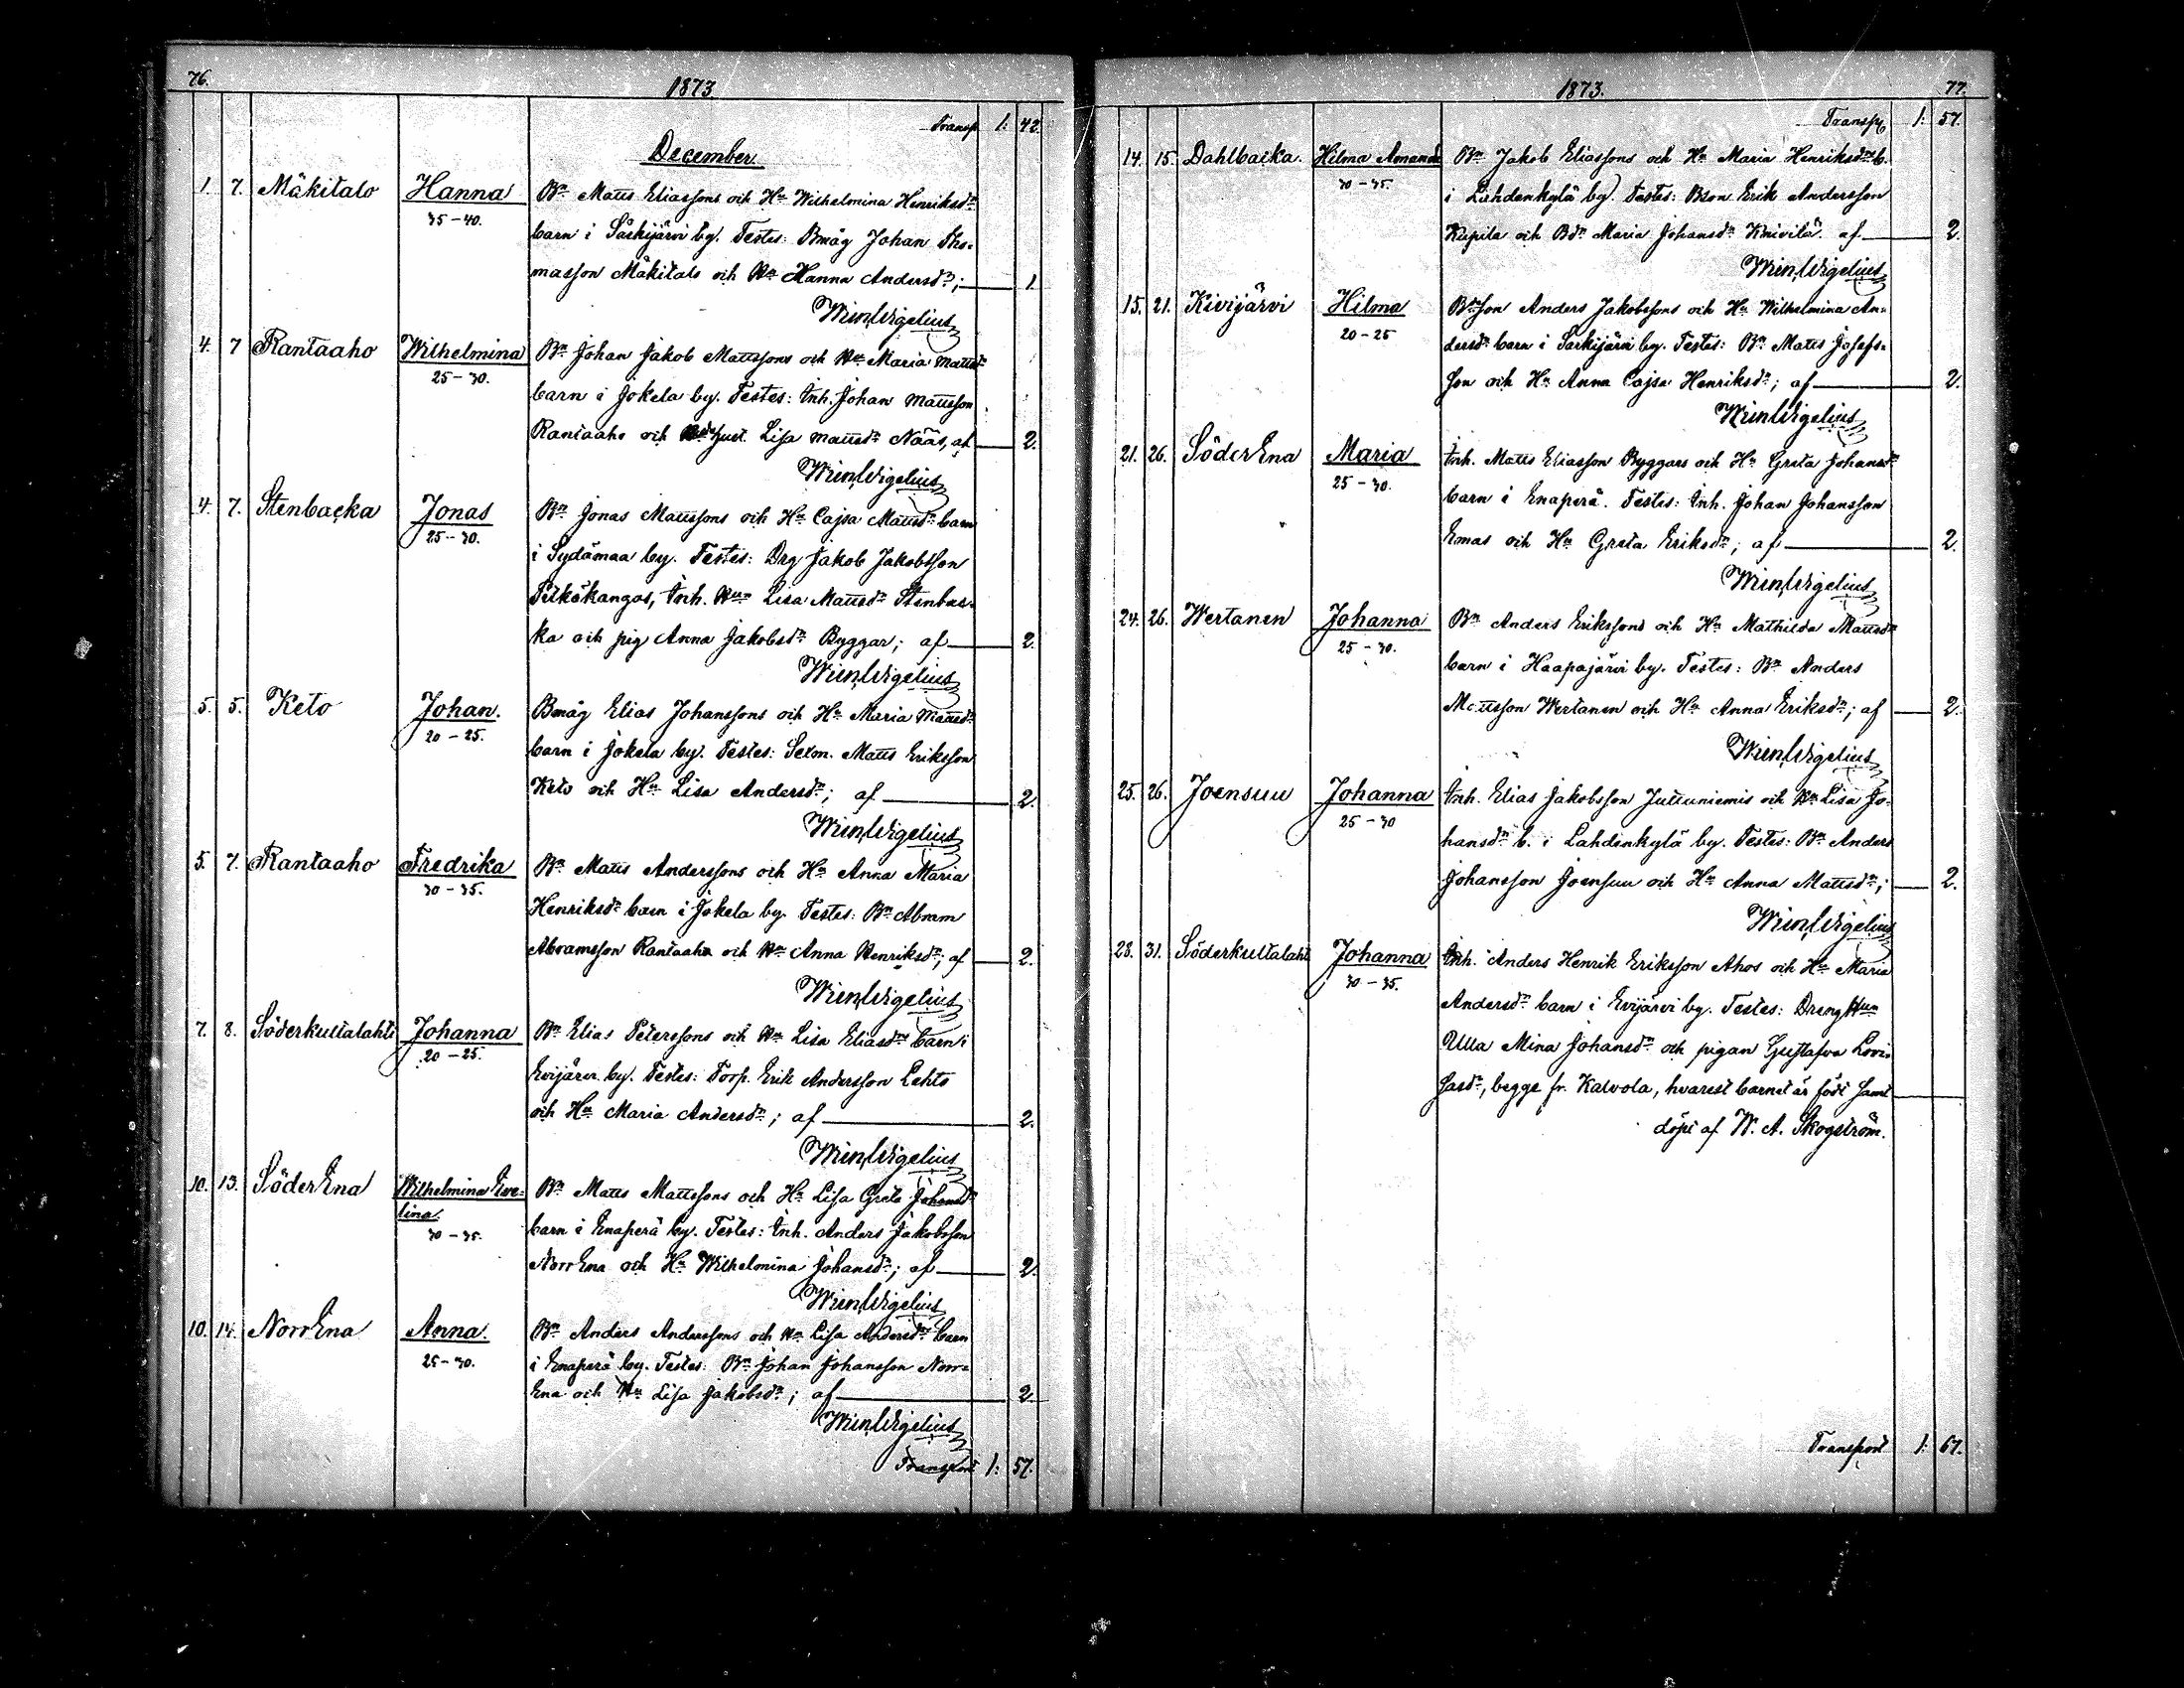 76.
1873
Transp. 1: 42.
December.
1. 7. Mäkitalo Hanna Bn Matts Eliassons och Hu Wilhelmina Henriksdr
35-40. barn i Särkijärvi by. Testes: Bmåg Johan Tho-
masson Mäkitalo och Hu Hanna Andersdr; 1
WmWigelius
4. 7 Rantaaho Wilhelmina Bn Johan Jakob Mattssons och Hu Maria Mattsdr
25-30. barn i Jokela by. Testes: Inh. Johan Mattsson
Rantaaho och Lisa Mattsdr Nääs, af 2.
WmWigelius
4. 7. Stenbacka Jonas Bn Jonas Mattssons och Hu Cajsa Mattsdr barn
25-30. i Sydämaa by. Testes: Drg Jakob Jakobsson
Pitkäkangas, Inh. Hu Lisa Mattsdr Stenbac-
ka och pig Anna Jakobsdr Byggar; af 2.
WmWigelius
5. 5. Keto Johan. Bmåg Elias Johanssons och Hu Maria Mattsdr
20-25. barn i Jokela by. Testes: Sexm. Matts Eriksson
Keto och Hu Lisa Andersdr; af 2.
WmWigelius
5. 7. Rantaaho Fredrika Bn Matts Anderssons och Hu Anna Maria
30-35. Henriksdr barn i Jokela by. Testes: Bn Abram
Abramsson Rantaaho och Hu Anna Henriksdr; af 2.
WmWigelius
7. 8. Söderkultalahti Johanna Bn Elias Peterssons och Hu Lisa Eliasdr barn i
20-25. Evijärvi by. Testes: Torp. Erik Andersson Lehto
och Hu Maria Andersdr; af 2.
WmWigelius
10. 13. SöderEna Wilhelmina Eve- Bn Matts Mattssons och Hu Lisa Greta Johansdr
lina.
30-35. barn i Enaperä by. Testes: Inh. Anders Jakobsson
NorrEna och Hu Wilhelmina Johansdr; af 2.
WmWigelius
10. 14. NorrEna Anna. Bn Anders Anderssons och Hu Lisa Andersdr barn
25-30. i Enaperä by. Testes: Bn Johan Johansson Norr-
Ena och Hu Lisa Jakobsdr; af 2
WmWigelius
Transport 1: 57.
1873. 77.
Transp. 1: 57.
14. 15. Dahlbacka. Hilma Amanda Bn Jakob Eliassons och Hu Maria Henriksdr b.
30-35. i Lahdenkylä by. Testes: Bson Erik Andersson
Kupila och Bdr Maria Johansdr Knivilä. af 2.
WmWigelius
15. 21. Kivijärvi Hilma Bson Anders Jakobssons och Hu Wilhelmina An-
20-25 dersdr barn i Särkijärvi by. Testes: Bn Matts Josefs-
son och Hu Anna Cajsa Henriksdr; af 2.
WmWigelius
21. 26. SöderEna Maria Inh. Matts Eliasson Byggars och Hu Greta Johansdr
25-30. barn i Enaperä. Testes: Inh. Johan Johansson
Enas och Hu Greta Eriksdr; af 2.
WmWigelius
24. 26. Wertanen Johanna Bn Anders Erikssons och Hu Mathilda Mattsdr
25-30. barn i Haapajärvi by. Testes: Bn Anders
Mattsson Wertanen och Hu Anna Eriksdr; af 2.
WmWigelius
25. 26. Joensuu Johanna Inh. Elias Jakobsson Juttuniemis och Hu Lisa Jo-
25-30 hansdr b. i Lahdenkylä by. Testes: Bn Anders
Johansson Joensuu och Hu Anna Mattsdr; 2.
WmWigelius
28. 31. Söderkultalahti Johanna Inh. Anders Henrik Eriksson Ahos och Hu Maria
30-35. Andersdr barn i Evijärvi by. Testes: Dreng Hun
Ulla Mina Johansdr och pigan Gustafva Lovi-
sasdr, begge fr. Kalvola, hvarest barnet är född samt
döpt af W. A. Skogström.
Transport 1: 67.